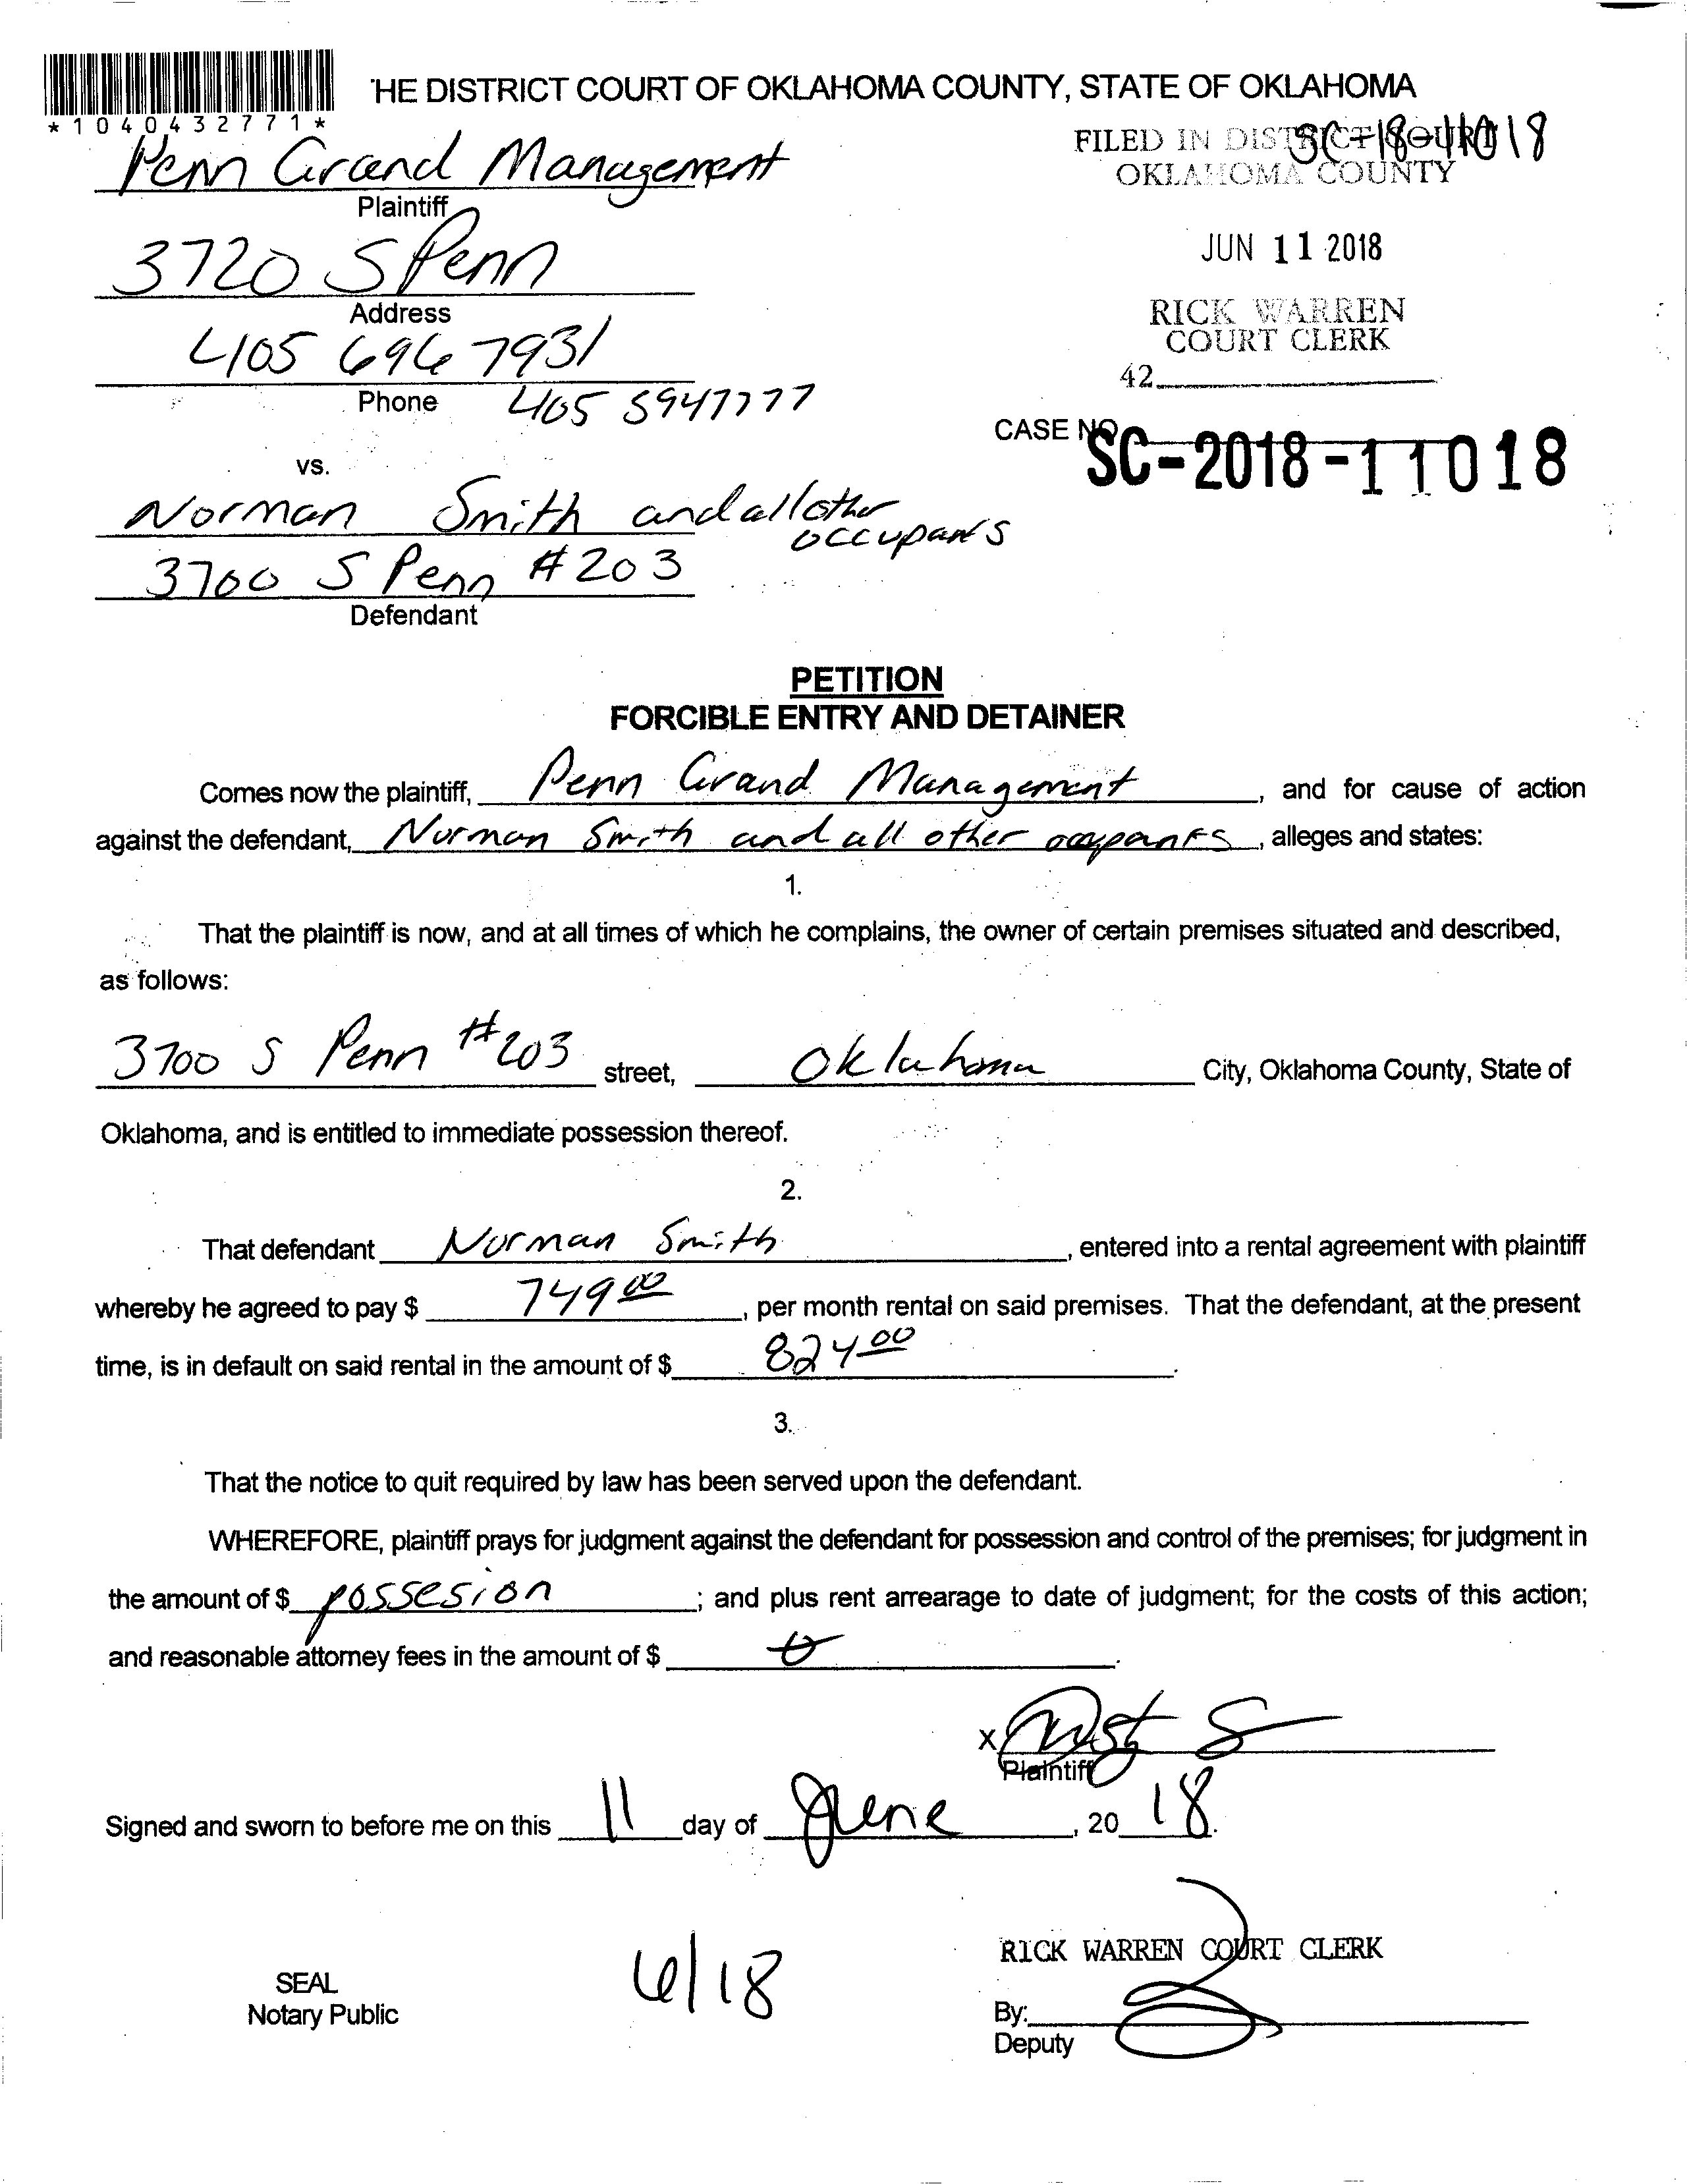 *1040432771*
'HE DISTRICT COURT OF OKLAHOMA COUNTY, STATE OF OKLAHOMA
FILED IN DISTRICT COURT
SC-18-11018
OKLAHOMA COUNTY
Penn Grand Management
Plaintiff
JUN 11 2018
3720 S Penn
Address
RICK WARREN
COURT CLERK
405 696 7931
42
Phone 405 5947777
CASE NO.
SC-2018-11018
vs.
Norman Smith and all other
occupants
3700 S Penn #203
Defendant
PETITION
FORCIBLE ENTRY AND DETAINER
Comes now the plaintiff, Penn Grand Management, and for cause of action
against the defendant, Norman Smith and all other occupants, alleges and states:
1.
That the plaintiff is now, and at all times of which he complains, the owner of certain premises situated and described,
as follows:
3700 S Penn #203 street, Oklahoma City, Oklahoma County, State of
Oklahoma, and is entitled to immediate possession thereof.
2.
That defendant Norman Smith, entered into a rental agreement with plaintiff
whereby he agreed to pay $ 749 00, per month rental on said premises. That the defendant, at the present
time, is in default on said rental in the amount of $ 824 00.
3.
That the notice to quit required by law has been served upon the defendant.
WHEREFORE, plaintiff prays for judgment against the defendant for possession and control of the premises; for judgment in
the amount of $ possesion; and plus rent arrearage to date of judgment; for the costs of this action;
and reasonable attorney fees in the amount of $ 0.
X
Plaintiff
Signed and sworn to before me on this 11 day of June, 20 18.
RICK WARREN COURT CLERK
SEAL
6/18
Notary Public
By:
Deputy